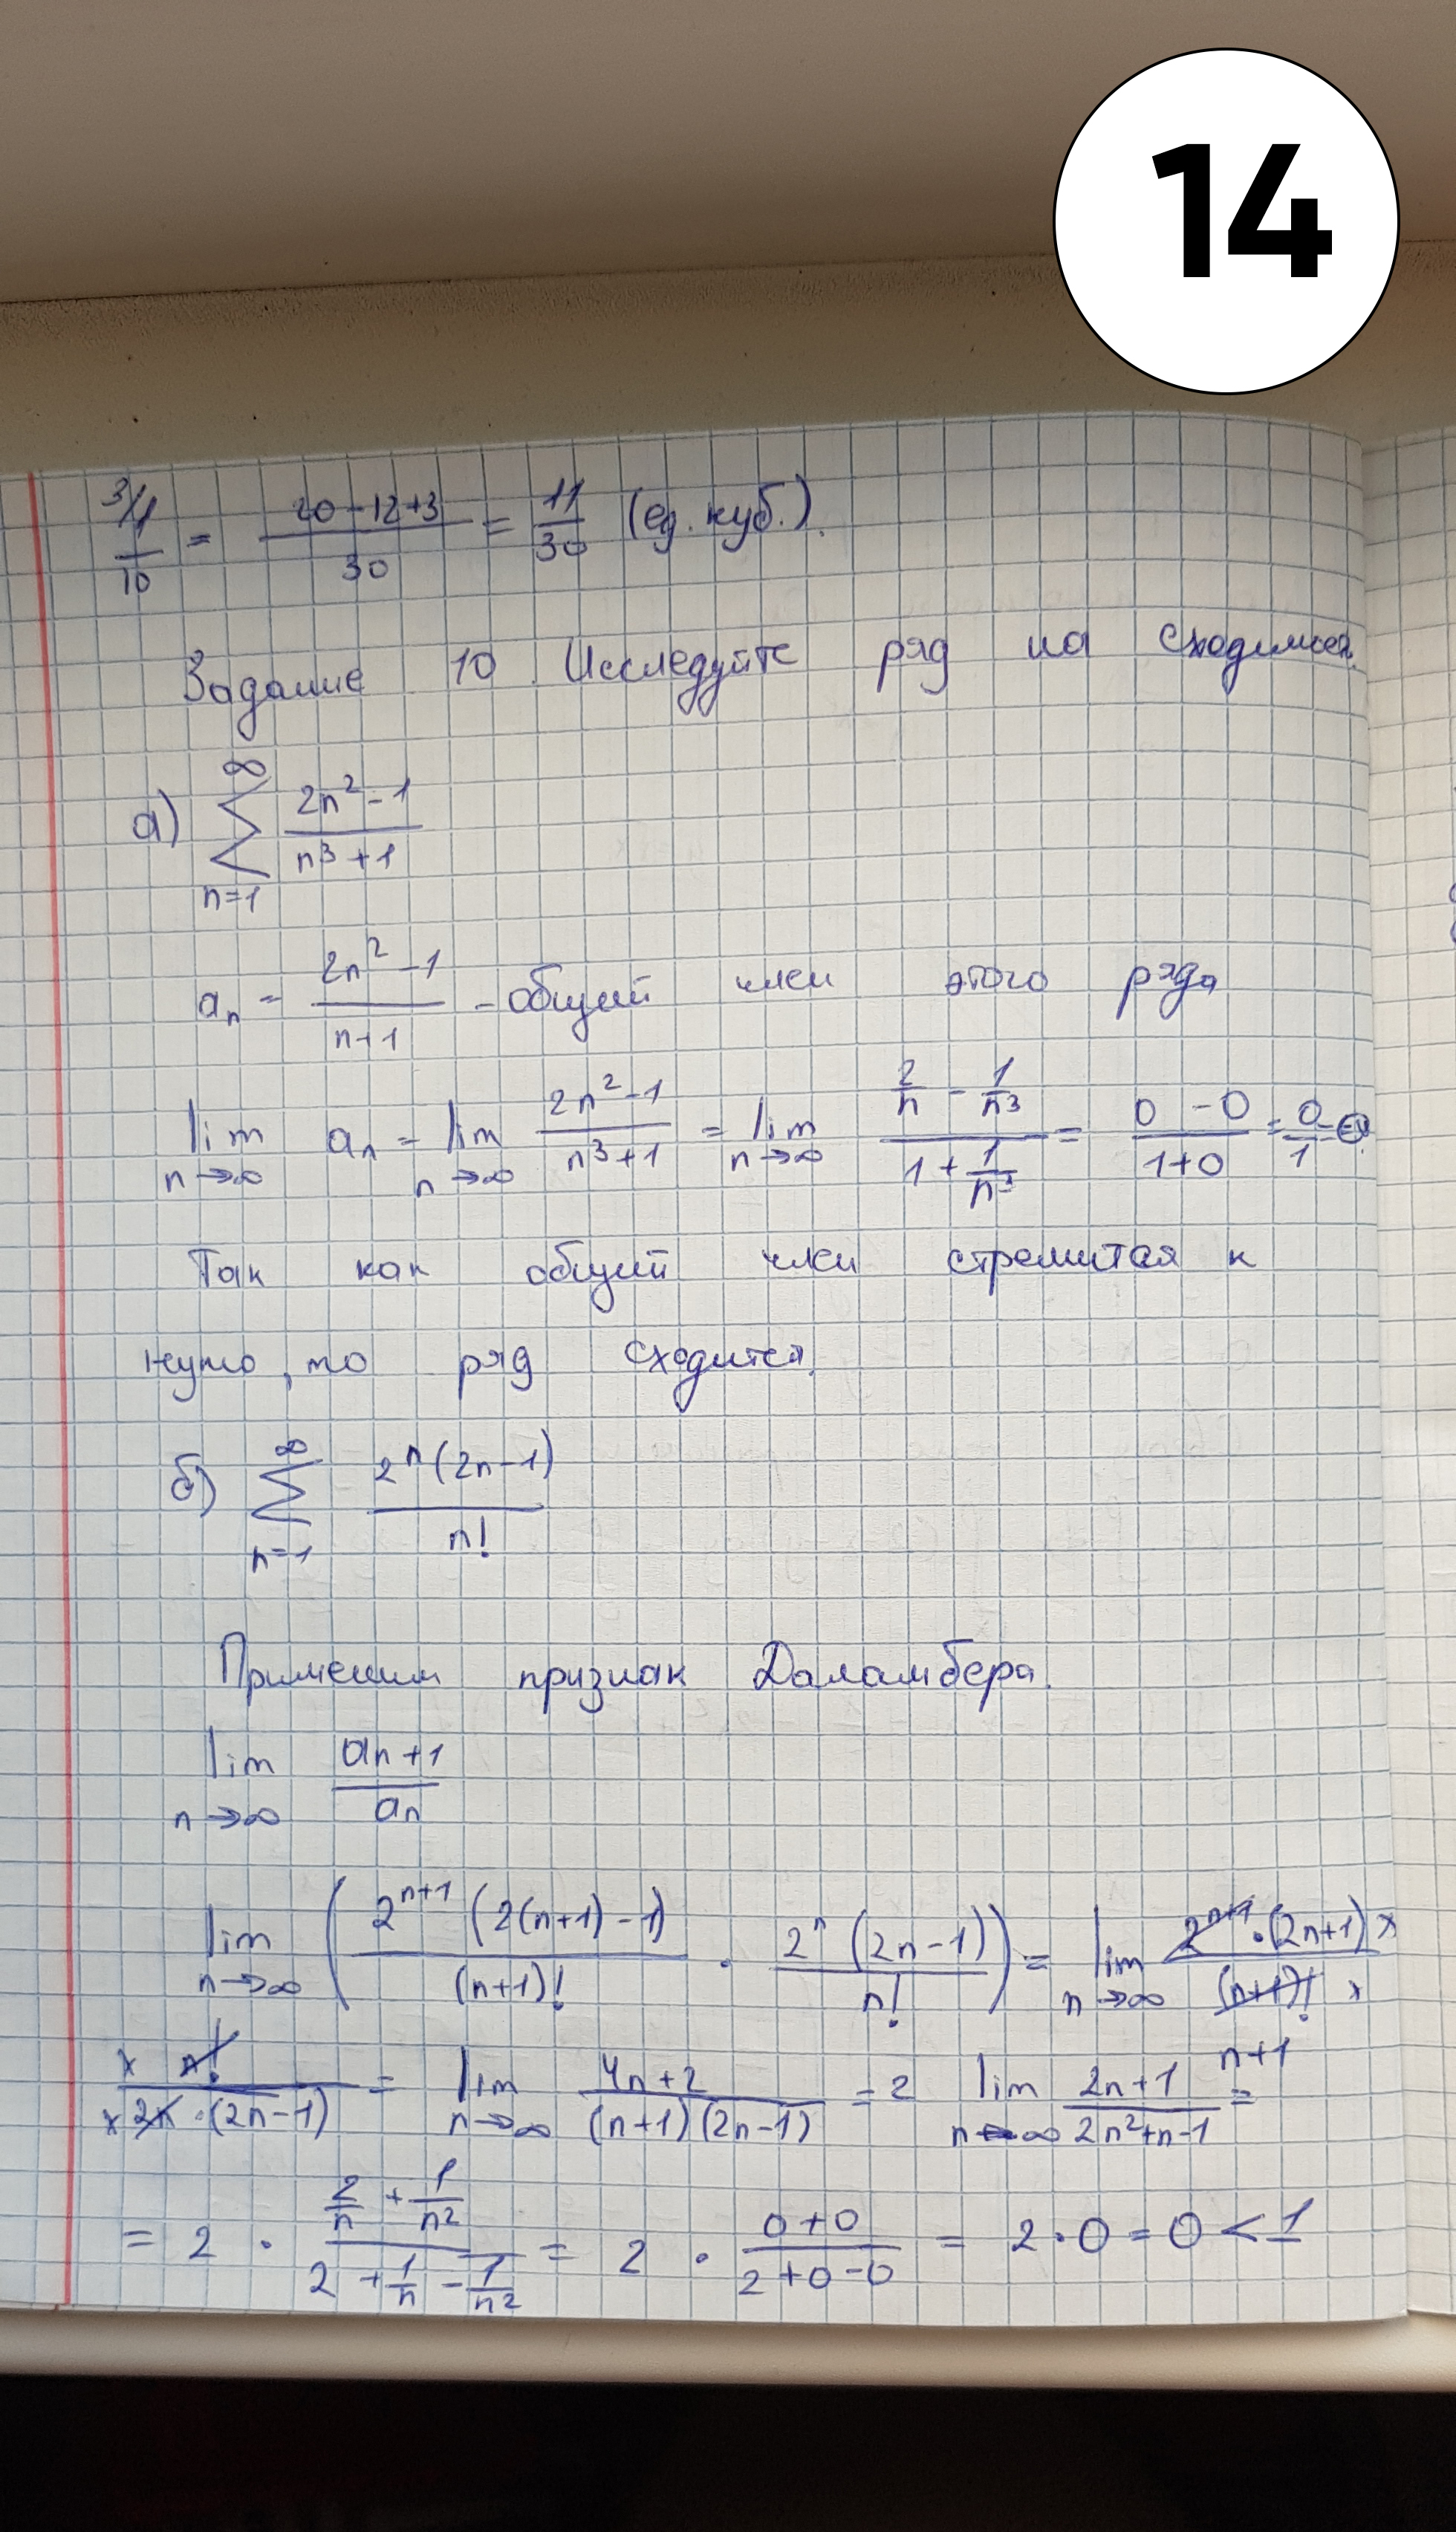 14
³/1/10 = (20-12+3)/30 = 11/30 (ед. куб.).
Задание 10. Исследуйте ряд на сходимость.
а) ∑_{n=1}^{∞} (2n²-1)/(n³+1)
aₙ = (2n²-1)/(n+1) - общий член этого ряда
lim_{n→∞} aₙ = lim_{n→∞} (2n²-1)/(n³+1) = lim_{n→∞} (2/n - 1/n³)/(1 + 1/n³) = (0-0)/(1+0) = 0/1 = 0.
Так как общий член стремится к
нулю, то ряд сходится.
б) ∑_{n=1}^{∞} 2ⁿ(2n-1)/n!
Применим признак Даламбера.
lim_{n→∞} aₙ₊₁/aₙ
lim_{n→∞} (2ⁿ⁺¹(2(n+1)-1)/(n+1)! · 2ⁿ(2n-1)/n!) = lim_{n→∞} 2ⁿ⁺¹·(2n+1) x / (n+1)! x
x n! / x 2ⁿ·(2n-1) = lim_{n→∞} (4n+2)/((n+1)(2n-1)) = 2 lim_{n→∞} (2n+1)/(2n²+n-1) = n+1
= 2 · (2/n + 1/n²)/(2 + 1/n - 1/n²) = 2 · (0+0)/(2+0-0) = 2·0 = 0 < 1